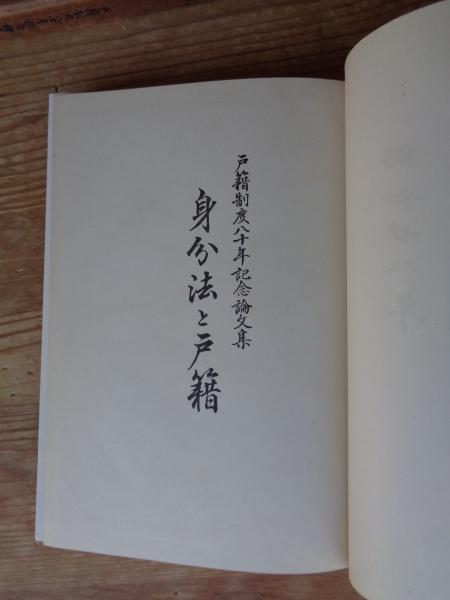 戸籍制度八十年記念論文集
身分法と戸籍